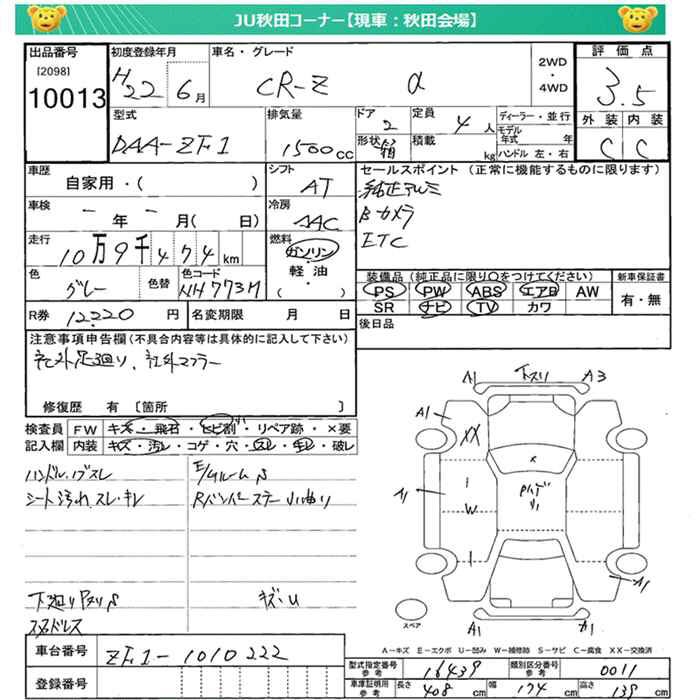 JU秋田コーナー【現車：秋田会場】
出品番号
[2098]
10013
初度登録年月
H22 6月
車名・グレード
CR-Z α
2WD
・
4WD
評価点
3.5
外装 内装
C C
型式
DAA-ZF1
排気量
1500cc
ドア
2
形状
箱
定員
4人
積載
kg
ディーラー・並行
モデル年式 年
ハンドル 左・右
車歴
自家用・( )
シフト
AT
セールスポイント (正常に機能するものに限ります)
純正アルミ
Bカメラ
ETC
車検
- 年 - 月( 日)
冷房
AAC
走行
10万9千474km
燃料
ガソリン
軽油
( ・ )
色
グレー
色替
色コード
NH773M
装備品 (純正品に限り○をつけてください)
PS PW ABS エアB AW
SR ナビ TV カワ
新車保証書
有・無
R券 12220円
名変期限 月 日
後日品
注意事項申告欄(不具合内容等は具体的に記入して下さい)
社外足廻り、社外マフラー
修復歴 有 〔箇所 〕
検査員記入欄
FW キズ・飛石・ヒビ割・リペア跡・×要
内装 キズ・汚レ・コゲ・穴・スレ・キレ・破レ
ハンドル、ノブスレ
シート汚れ、スレ・キレ
E/ルームS
Rバンパーステー小曲り
下廻りPヌリS
キズ・U
スタッドレス
下スリ
A1
A3
A1
XX
A1
W
x
A1
A1
A1
スペア
A-キズ E-エクボ U-凹み W-補修跡 S-サビ C-腐食 XX-交換済
車台番号
ZF1-1010222
登録番号
型式指定番号 参考
16439
類別区分番号 参考
0011
車庫証明用 参考
長さ 408cm 幅 174cm 高さ 139cm